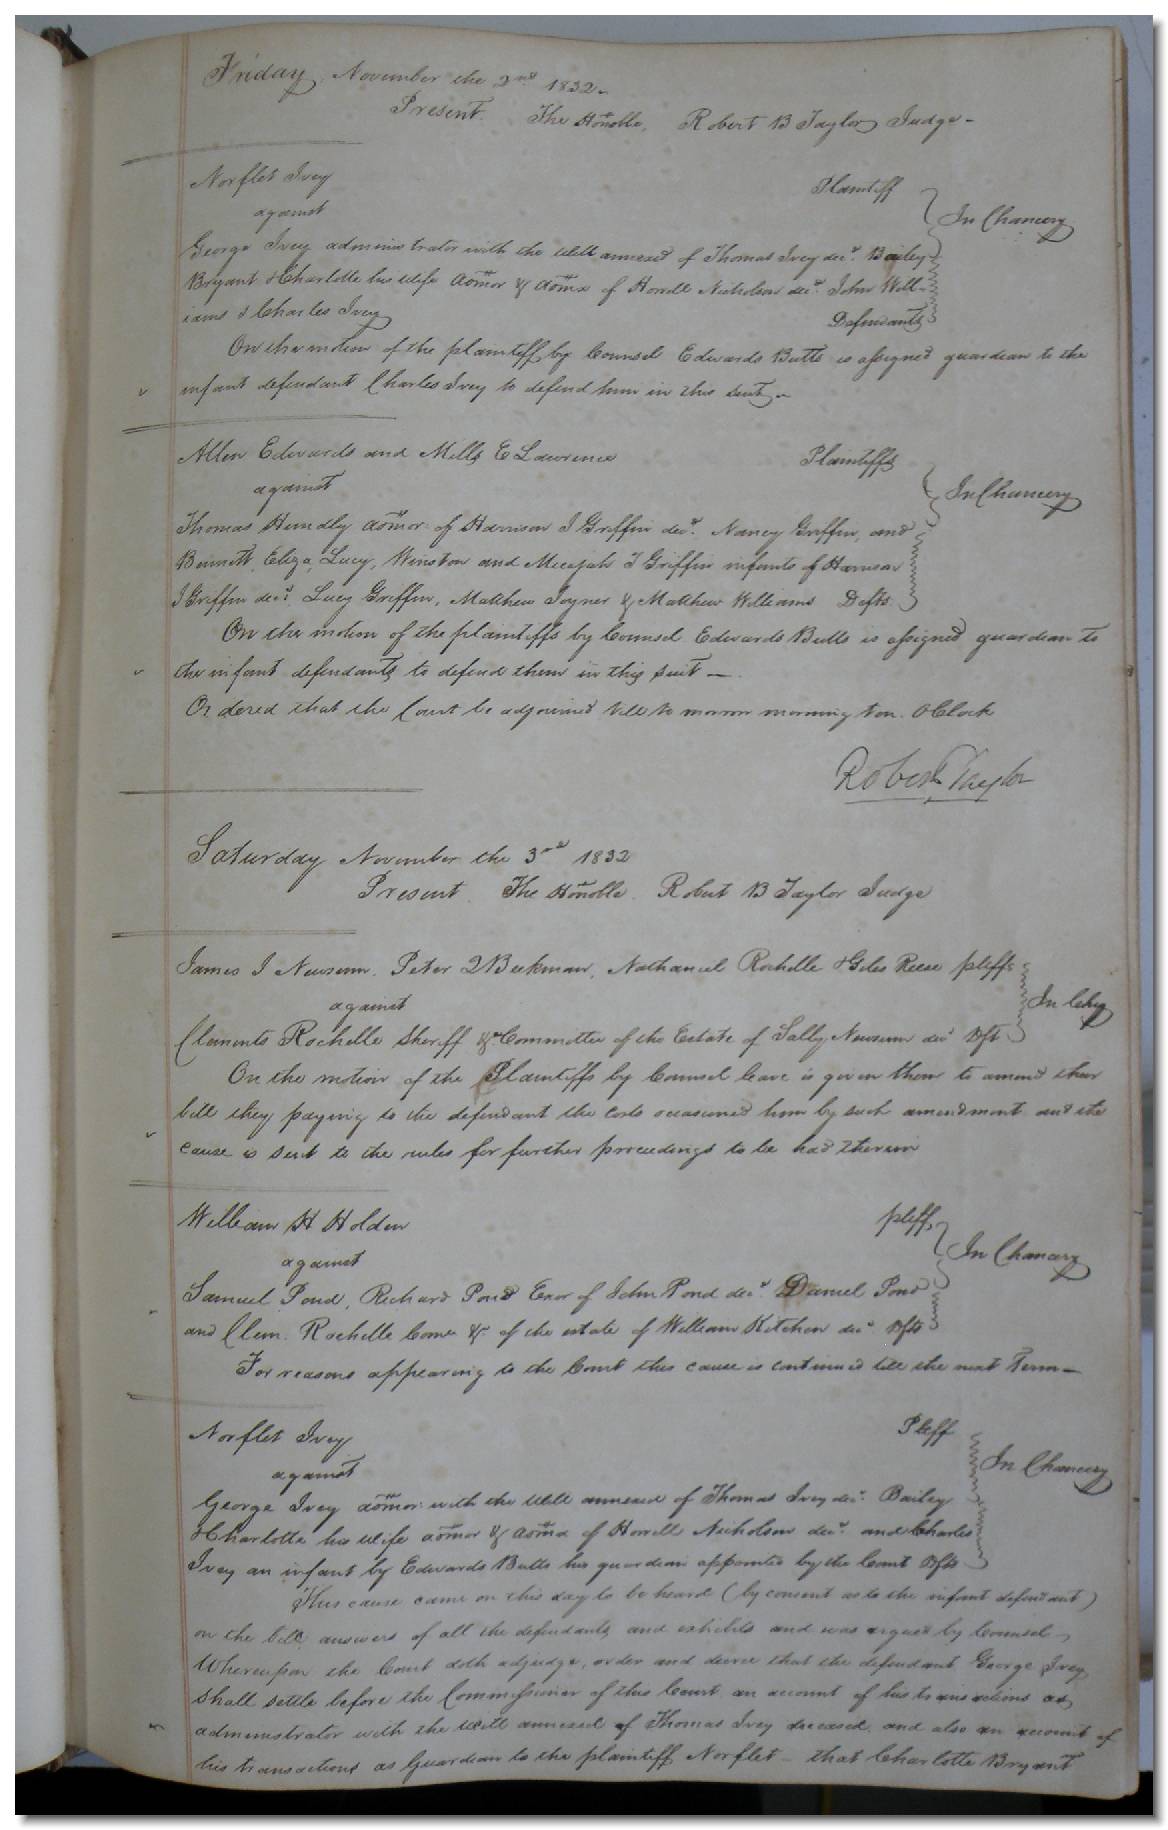 Friday November the 2nd 1832.
Present. The Honoble. Robert B Taylor Judge -
Norflet Ivey Plaintiff
against In Chancery
George Ivey administrator with the Will annexed of Thomas Ivey decd. Bailey
Bryant & Charlotte his wife admor & admx of Howell Nicholson decd. John Will-
iams & Charles Ivey Defendants
On the motion of the plaintiff by Counsel Edwards Butts is assigned guardian to the
infant defendant Charles Ivey to defend him in this suit -
Allen Edwards and Mills E Lawrence Plaintiffs
against In Chancery
Thomas Hundly admor. of Harrison J Griffin decd. Nancy Griffin, and
Bennett, Eliza, Lucy, Winston and Micajah T Griffin infants of Harrison
J Griffin decd. Lucy Griffin, Matthew Joyner & Matthew Williams Defts.
On the motion of the plaintiffs by Counsel Edwards Butts is assigned guardian to
the infant defendants to defend them in this suit -
Ordered that the Court be adjourned till to morrow morning ten. OClock
Robert Taylor
Saturday November the 3rd 1832
Present. The Honoble. Robert B Taylor Judge
James J Newsum. Peter Q Beekman, Nathaniel Rochelle & Giles Reese pltffs
against In Chy
Clements Rochelle Sheriff & Committee of the Estate of Sally Newsum decd Dft
On the motion of the Plaintiffs by Counsel leave is given them to amend their
bill they paying to the defendant the costs occasioned him by such amendment and the
cause is sent to the rules for further proceedings to be had therein
William H Holden pltff,
against In Chancery
Samuel Pond, Richard Pond Exor of John Pond decd. Daniel Pond
and Clem. Rochelle Come &c of the estate of William Kitchen decd Dfts
For reasons appearing to the Court this cause is continued till the next Term -
Norflet Ivey Pltff
against In Chancery
George Ivey admor. with the Will annexed of Thomas Ivey decd. Bailey
& Charlotte his wife admor & admx of Howell Nicholson decd. and Charles
Ivey an infant by Edwards Butts his guardian appointed by the Court Dfts
This cause came on this day to be heard (by consent as to the infant defendant)
on the bill, answers of all the defendants and exhibits and was argued by Counsel -
Whereupon the Court doth adjudge, order and decree that the defendant George Ivey
shall settle before the Commissioner of this Court an account of his transactions as
administrator with the Will annexed of Thomas Ivey deceased, and also an account of
his transactions as Guardian to the plaintiff Norflet - that Charlotte Bryant